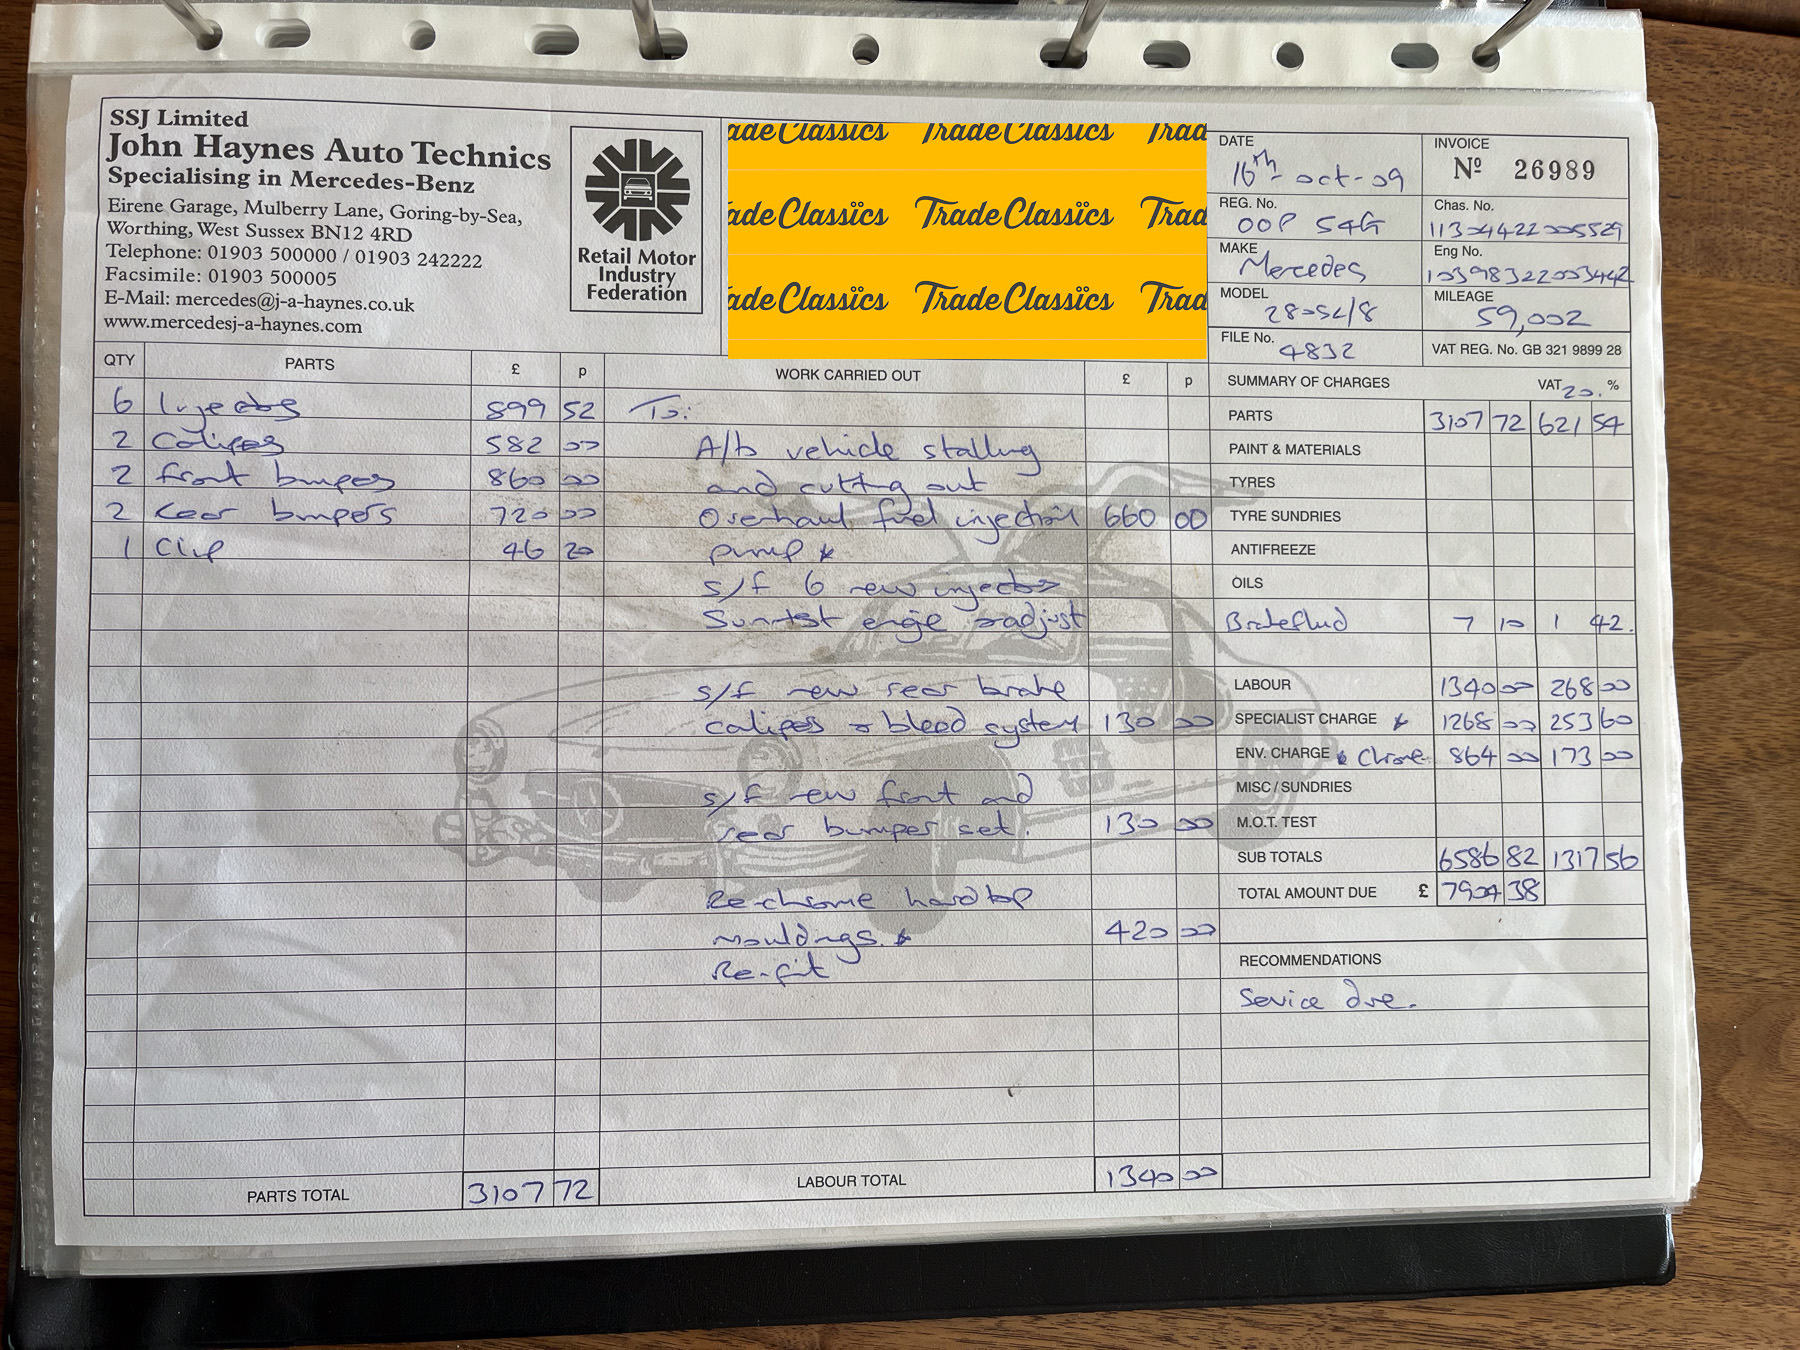 SSJ Limited
John Haynes Auto Technics
Specialising in Mercedes-Benz
Eirene Garage, Mulberry Lane, Goring-by-Sea,
Worthing, West Sussex BN12 4RD
Telephone: 01903 500000 / 01903 242222
Facsimile: 01903 500005
E-Mail: mercedes@j-a-haynes.co.uk
www.mercedesj-a-haynes.com
Retail Motor
Industry
Federation
adeClassics TradeClassics Trad
adeClassics TradeClassics Trad
adeClassics TradeClassics Trad
DATE 16th-oct-09
INVOICE Nº 26989
REG. No. OOP 54G
Chas. No. 11304422005529
MAKE Mercedes
Eng No. 10398322003442
MODEL 280SL/8
MILEAGE 59,002
FILE No. 4832
VAT REG. No. GB 321 9899 28
QTY PARTS £ p
6 Injectors 899 52
2 Calipers 582 00
2 front bumpers 860 00
2 rear bumpers 720 00
1 Clip 46 20
PARTS TOTAL 3107 72
WORK CARRIED OUT £ p
To:
A/b vehicle stalling
and cutting out
Overhaul fuel injection 660 00
pump *
s/f 6 new injectors
Suntest engie radjust
s/f new rear brake
calipers & bleed system 130 00
s/f new front and
rear bumper set. 130 00
Re-chrome hardtop
mouldings * 420 00
Re-fit
LABOUR TOTAL 1340 00
SUMMARY OF CHARGES VAT 20. %
PARTS 3107 72 621 54
PAINT & MATERIALS
TYRES
TYRE SUNDRIES
ANTIFREEZE
OILS
Brakefluid 7 10 1 42.
LABOUR 1340 00 268 00
SPECIALIST CHARGE * 1268 00 253 60
ENV. CHARGE * Chrome 864 00 173 00
MISC / SUNDRIES
M.O.T. TEST
SUB TOTALS 6586 82 1317 56
TOTAL AMOUNT DUE £ 7904 38
RECOMMENDATIONS
Service due.